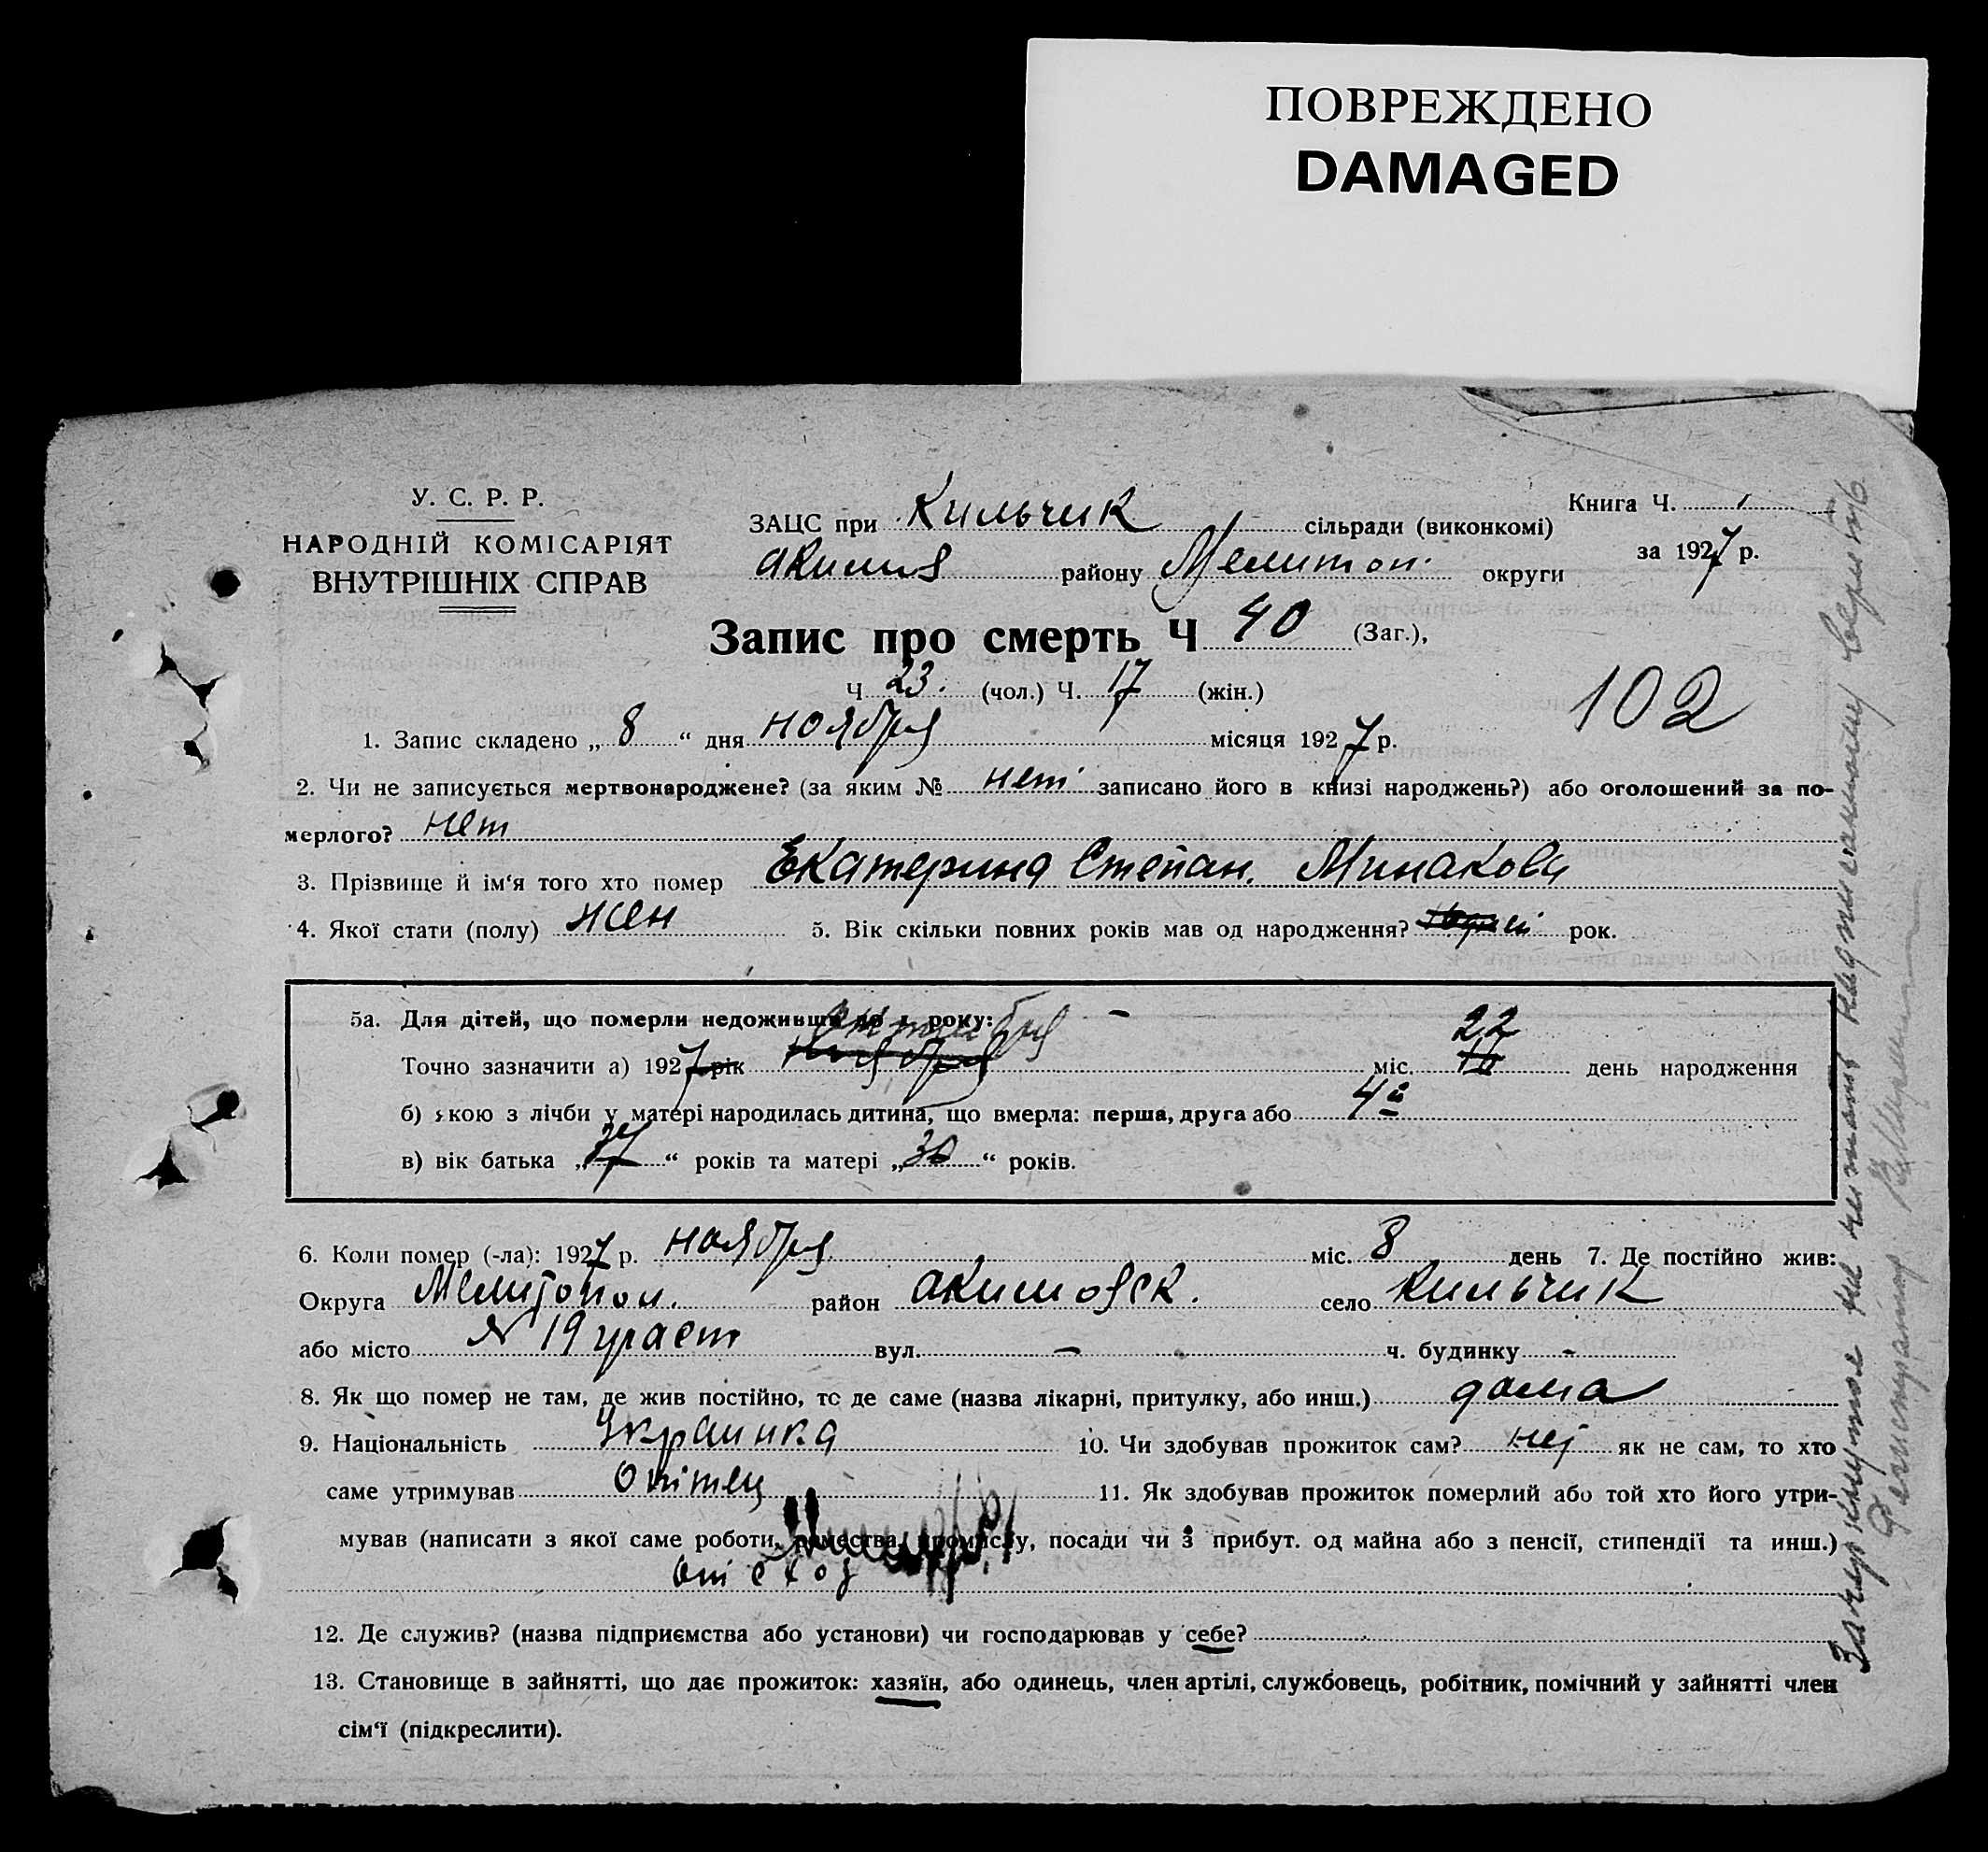 ПОВРЕЖДЕНО
DAMAGED
У. С. Р. Р.
НАРОДНІЙ КОМІСАРІЯТ
ВНУТРІШНІХ СПРАВ
ЗАЦС при Кильчик сільради (виконкомі)
Аким района району Мелитоп. округи
Книга Ч. 1
за 1927 р.
Запис про смерть Ч 40 (Заг.),
Ч 23. (чол.) Ч. 17 (жін.)
102
1. Запис складено „ 8 “ дня ноября місяця 1927 р.
2. Чи не записується мертвонароджене? (за яким № нет записано його в книзі народжень?) або оголошений за по-
мерлого? нет
3. Прізвище й ім‘я того хто помер Екатерина Степан. Минакова
4. Якої стати (полу) жен 5. Вік скільки повних років мав од народження? рок.
5а. Для дітей, що померли недоживши до 1 року: –
Точно зазначити а) 1927 рік октября ноября міс. 22 10 день народження
б) якою з лічби у матері народилась дитина, що вмерла: перша, друга або 4й
в) вік батька „ 37 “ років та матері „ 30 “ років.
6. Коли помер (-ла): 1927 р. ноября міс. 8 день 7. Де постійно жив:
Округа Мелитопол. район Акимовск. село Кильчик
або місто № 19 участ вул. – ч. будинку -
8. Як що помер не там, де жив постійно, то де саме (назва лікарні, притулку, або инш.) дома
9. Національність Украинка 10. Чи здобував прожиток сам? нет як не сам, то хто
саме утримував отец 11. Як здобував прожиток померлий або той хто його утри-
мував (написати з якої саме роботи, ремества, промислу, посади чи з прибут. од майна або з пенсії, стипендії та инш.)
от схоз
12. Де служив? (назва підприємства або установи) чи господарював у себе?
13. Становище в зайнятті, що дає прожиток: хазяїн, або одинець, член артілі, службовець, робітник, помічний у зайнятті член
сім‘ї (підкреслити).
Зачеркнутое не читать надписанному верить
Регистратор